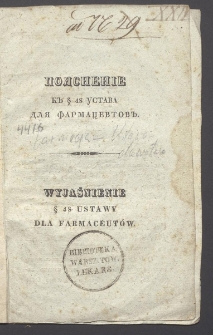 ПОЯСНЕНІЕ
КЪ § 48 УСТАВА
ДЛЯ ФАРМАЦЕВТОВЪ.
4476
WYJAŚNIENIE
§ 48 USTAWY
DLA FARMACEUTÓW.
BIBLIOTEKA
WARSZ. TOW.
LEKARZ